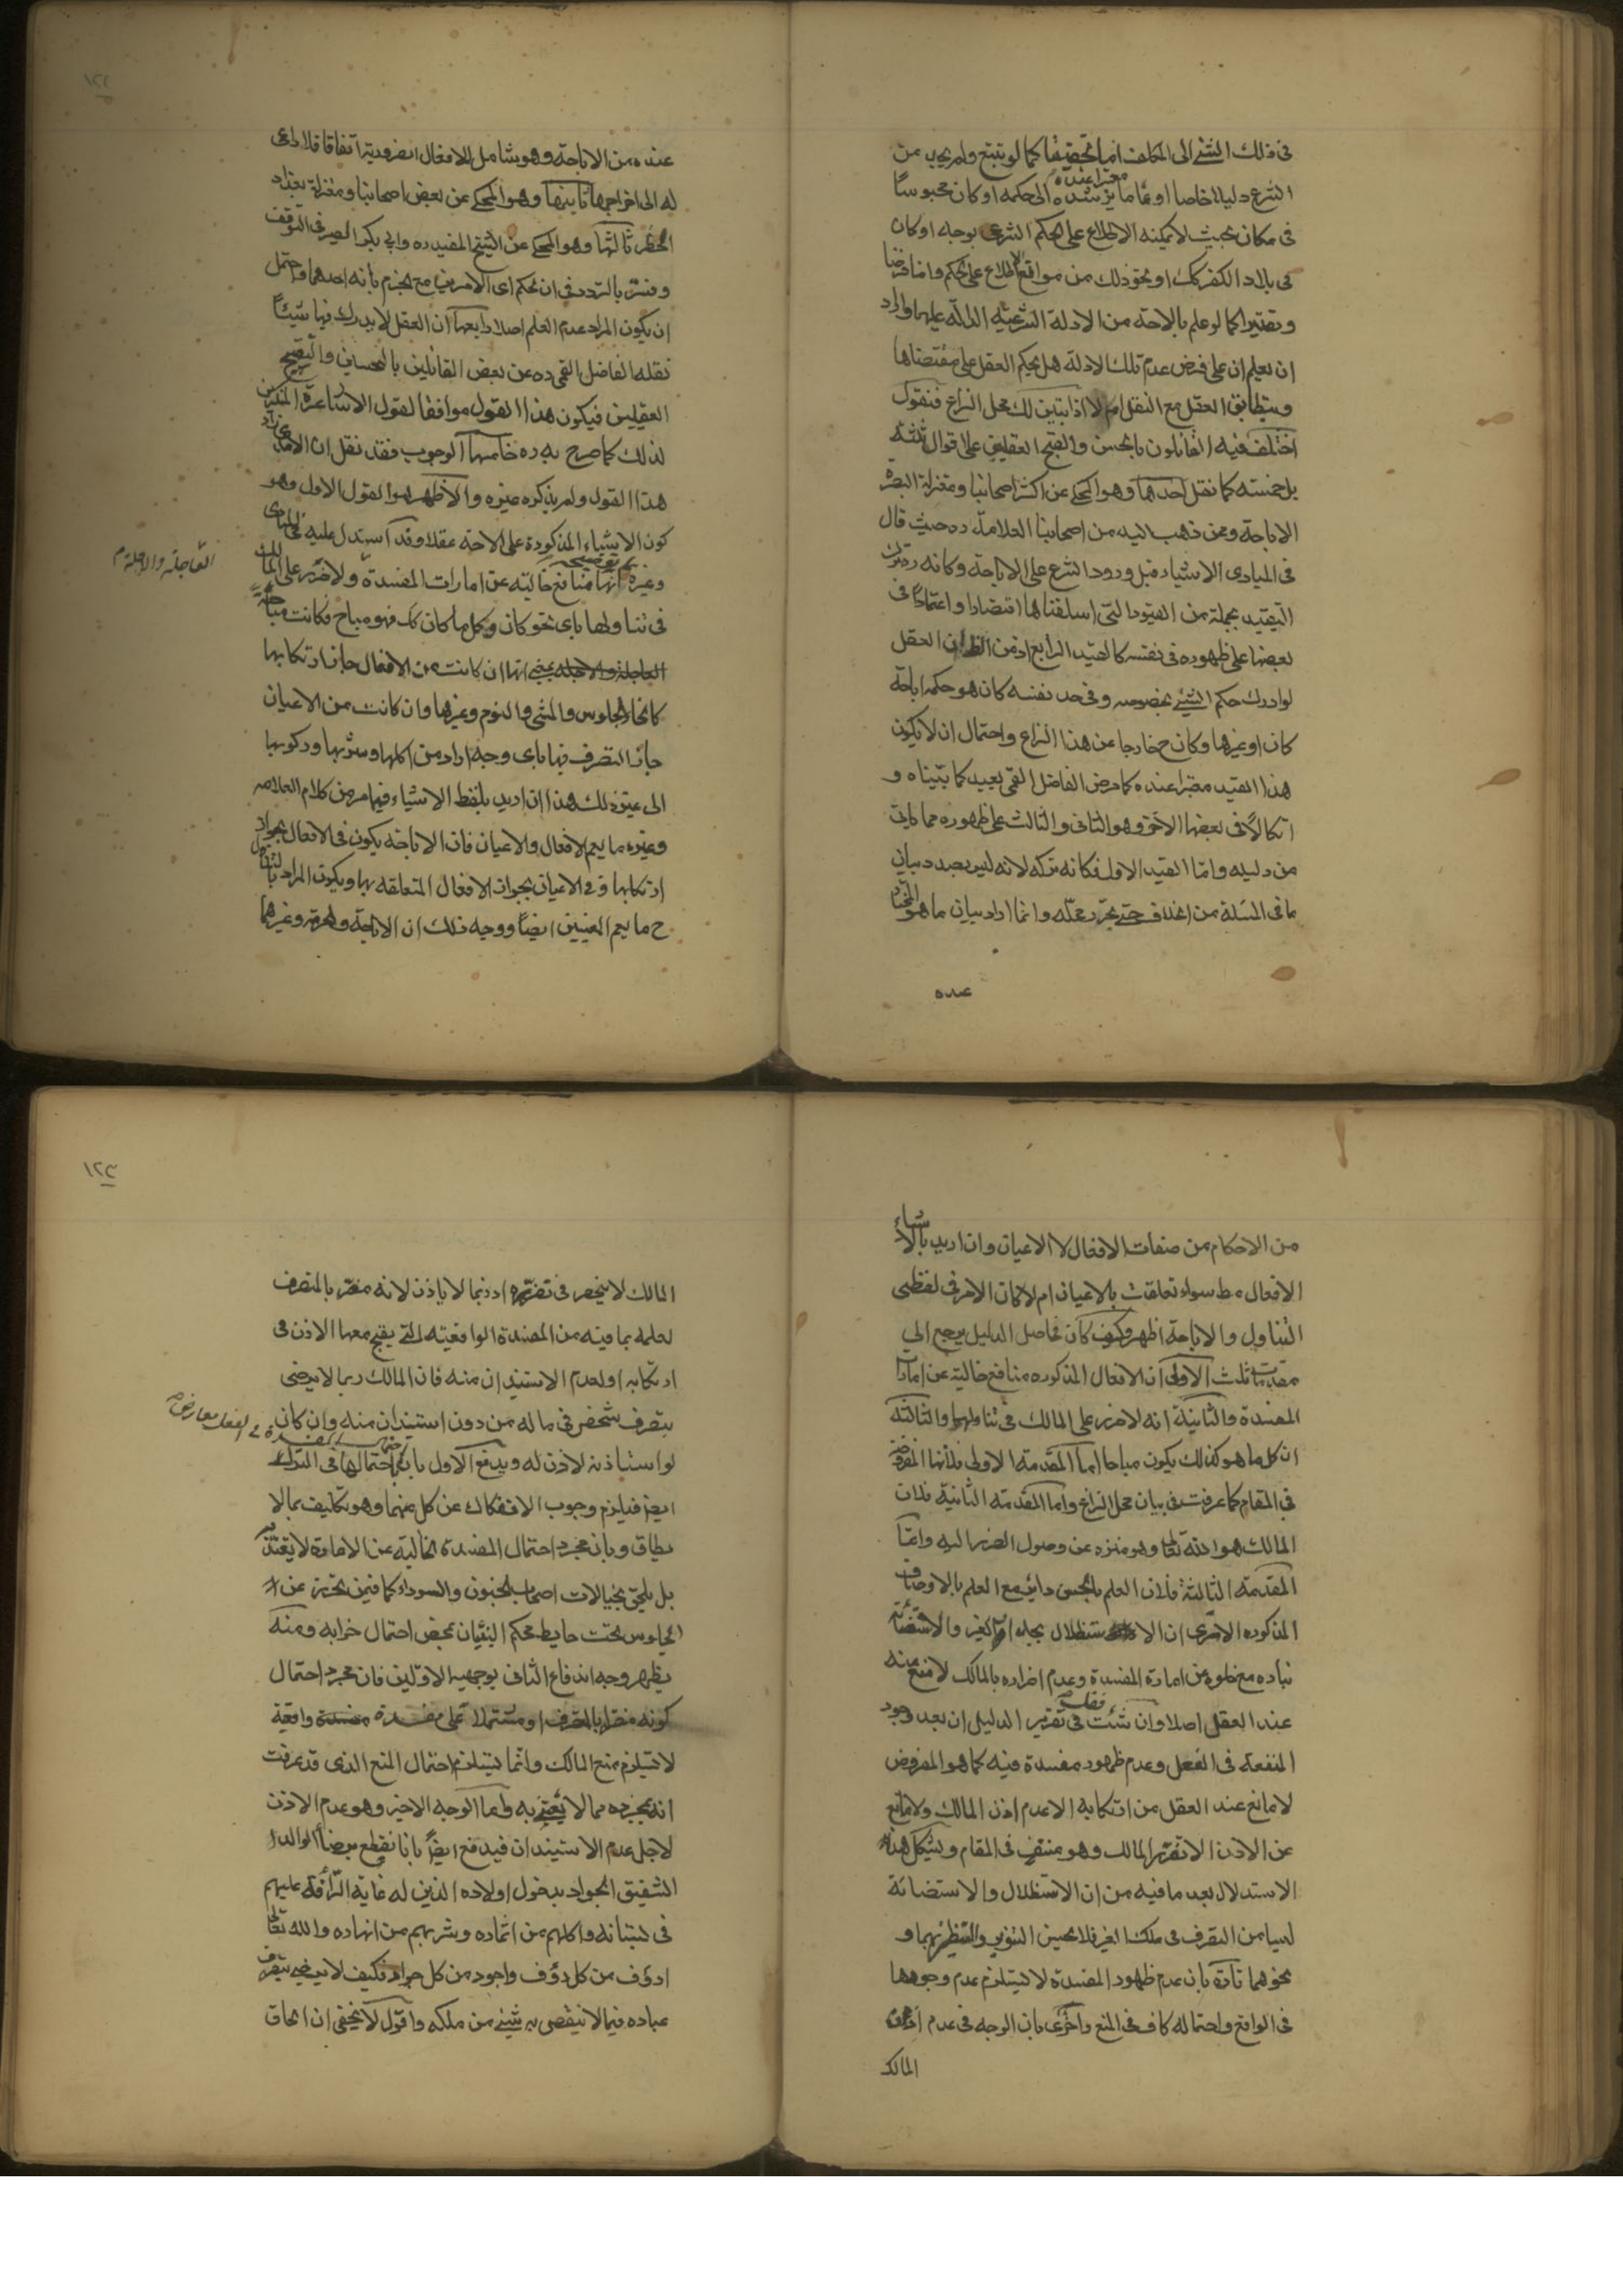 فى ذلك الشئ الى المكلف اما تحقيقا كما لو تتبع ولم يجد من
الشرع دليلا خاصا او عاما يرشده الى حكمه او كان محبوسًا
معتبرا عنده
فى مكان بحيث لا يمكنه الاطلاع على الحكم الشرعى بوجه او كان
فى بلاد الكفر كك او نحو ذلك من موانع الاطلاع على الحكم واما فرضا
وتقديرا كما لو علم بالاحة من الادلة الشرعيه الدالة عليها واراد
ان يعلم ان على فرض عدم تلك الادلة هل يحكم العقل على مقتضاها
ويتطابق العقل مع النقل ام لا اذا تبين لك محل النزاع فنقول
اختلف فيه القائلون بالحسن والقبح العقليين على اقوال ثلثه
بل خمسته كما نقل احدها وهو المحكى عن اكثر اصحابنا ومعتزلة البصرة
الاباحة وممن ذهب اليه من اصحابنا العلامة ره حيث قال
فى المبادى الاشياء قبل ورود الشرع على الاباحة وكانه ره ترك
التقييد بجملة من القيود التى اسلفناها اقتصارا واعتمادًا فى
بعضها على ظهوره فى نفسه كالقيد الرابع اذ من الظ ان العقل
لو ادرك حكم الشئ بخصوصه وفى حد نفسه كان هو حكمه اباحة
كان او غيرها وكان ح خارجا عن هذا النزاع واحتمال ان لا يكون
هذا القيد معتبرا عنده كما مرض الفاضل القمى بعيد كما بيناه و
اتكالًا فى بعضها الآخر وهو الثانى والثالث على ظهوره مما ياتى
من دليله واما القيد الاول فكانه تركه لانه ليس بصدد بيان
ما فى المسئلة من الخلاف حتى يحرر محله وانما اراد بيان ما هو المختار
عنده
١٢٢
عنده من الاباحة وهو شامل للافعال الضرورية اتفاقا فلا داعى
له الى اخراجها ثانيها وهو المحكى عن بعض اصحابنا ومعتزلة بغداد
الحظر ثالثها وهو المحكى عن الشيخ المفيد ره وابى بكر الصيرفى التوقف
وفسّر بالتردد فى ان الحكم اى الامرين مع الجزم بانه احدهما واحتمل
ان يكون المراد عدم العلم اصلا رابعها ان العقل لا يدرك فيها شيئًا
نقله الفاضل القمى ره عن بعض القائلين بالتحسين والتقبيح
العقليين فيكون هذا القول موافقا لقول الاشاعرة المنكرين
لذلك كما صرح به ره خامسها الوجوب فقد نقل ان الامدى زاد
هذا القول ولم يذكره غيره والاظهر هو القول الاول وهو
كون الاشياء المذكورة على الاحة عقلا وقد استدل عليه فى المبادى
وغيره بتوضيح انها منافع خالية عن امارات المفسدة ولا ضرر على المالك
فى تناولها باى نحو كان وكل ما كان كك فهو مباح فكانت مباحة
العاجلة والاجلة يعنى انها ان كانت من الافعال جاز ارتكابها
العاجلة والاجلة م
كانحاء الجلوس والمشى والنوم وغيرها وان كانت من الاعيان
جاز التصرف فيها باى وجه اراد من اكلها وشربها وركوبها
الى غير ذلك هذا ان اريد بلفظ الاشياء فيما مر من كلام العلامه
وغيره ما يعم الافعال والاعيان فان الاباحة يكون فى الافعال بجواز
ارتكابها وفى الاعيان بجواز الافعال المتعلقه بها ويكون المراد بالتناول
ح ما يعم المعنيين ايضًا ووجه ذلك ان الاباحة والحرمة وغيرهما
من الاحكام من صفات الافعال لا الاعيان وان اريد بالاشياء
الافعال مط سواء تعلقت بالاعيان ام لا كان الامر فى لفظى
التناول والاباحة اظهر وكيف كان فحاصل الدليل يرجع الى
مقدمات ثلث الاولى ان الافعال المذكوره منافع خالية عن امارات
المفسدة والثانية انه لا ضرر على المالك فى تناولها والثالثة
ان كل ما هو كذلك يكون مباحا اما المقدمة الاولى فلانها المفروض
فى المقام كما عرفت فى بيان محل النزاع واما المقدمة الثانية فلان
المالك هو الله تعالى وهو منزه عن وصول الضرر اليه واما
المقدمة الثالثة فلان العلم بالحسن دائر مع العلم بالاوصاف
المذكوره الا ترى ان الاستظلال بجدار الغير والاستضائة
بناره مع خلوه عن امارة المفسدة وعدم اضراره بالمالك لا منع منه
عند العقل اصلا وان شئت فقل فى تقرير الدليل ان بعد وجود
المنفعة فى الفعل وعدم ظهور مفسدة فيه كما هو المفروض
لا مانع عند العقل من ارتكابه الا عدم اذن المالك ولا مانع
عن الاذن الا تضرر المالك وهو منتف فى المقام ويشكل هذا
الاستدلال بعد ما فيه من ان الاستظلال والاستضائة
ليسا من التصرف فى ملك الغير فلا يحسن التنوير والتنظير بهما و
نحوهما تارة بان عدم ظهور المفسدة لا يستلزم عدم وجودها
فى الواقع واحتماله كاف فى المنع واخرى بان الوجه فى عدم اذن
المالك
١٢٣
المالك لا ينحصر فى تضرره اذ ربما لا ياذن لانه مضر بالمتصرف
لعلمه بما فيه من المفسدة الواقعيه التى يقبح معها الاذن فى
ارتكابه او لعدم الاستيذان منه فان المالك ربما لا يرضى
بتصرف شخص فى ماله من دون استيذان منه وان كان
لو استاذنه لاذن له ويدفع الاول بان احتمالها فى الترك
احتمال المفسدة فى الفعل معارض
ايضا فيلزم وجوب الانفكاك عن كل منهما وهو تكليف بما لا
يطاق وبان مجرد احتمال المفسدة الخالية عن الامارة لا يعتد به
بل يلحق بخيالات اصحاب الجنون والسوداء كما فيمن تحرز عن
الجلوس تحت حايط محكم البنيان بمحض احتمال خرابه ومنه
يظهر وجه اندفاع الثانى بوجهيه الاولين فان مجرد احتمال
كونه مضرا بالمتصرف او مشتملا على مفسدة واقعية
لا يستلزم منع المالك وانما يستلزم احتمال المنع الذى قد عرفت
انه بمجرده مما لا يعتنى به واما الوجه الاخير وهو عدم الاذن
لاجل عدم الاستيذان فيدفع ايضًا بانا نقطع برضا الوالد
الشفيق الجواد بدخول اولاده الذين له غاية الرأفة عليهم
فى بستانه واكلهم من اثماره وشربهم من انهاره والله تعالى
ارؤف من كل رؤف واجود من كل جواد فكيف لا يرضى بتصرف
عباده فيما لا ينقص به شئ من ملكه واقول لا يخفى ان الحاق